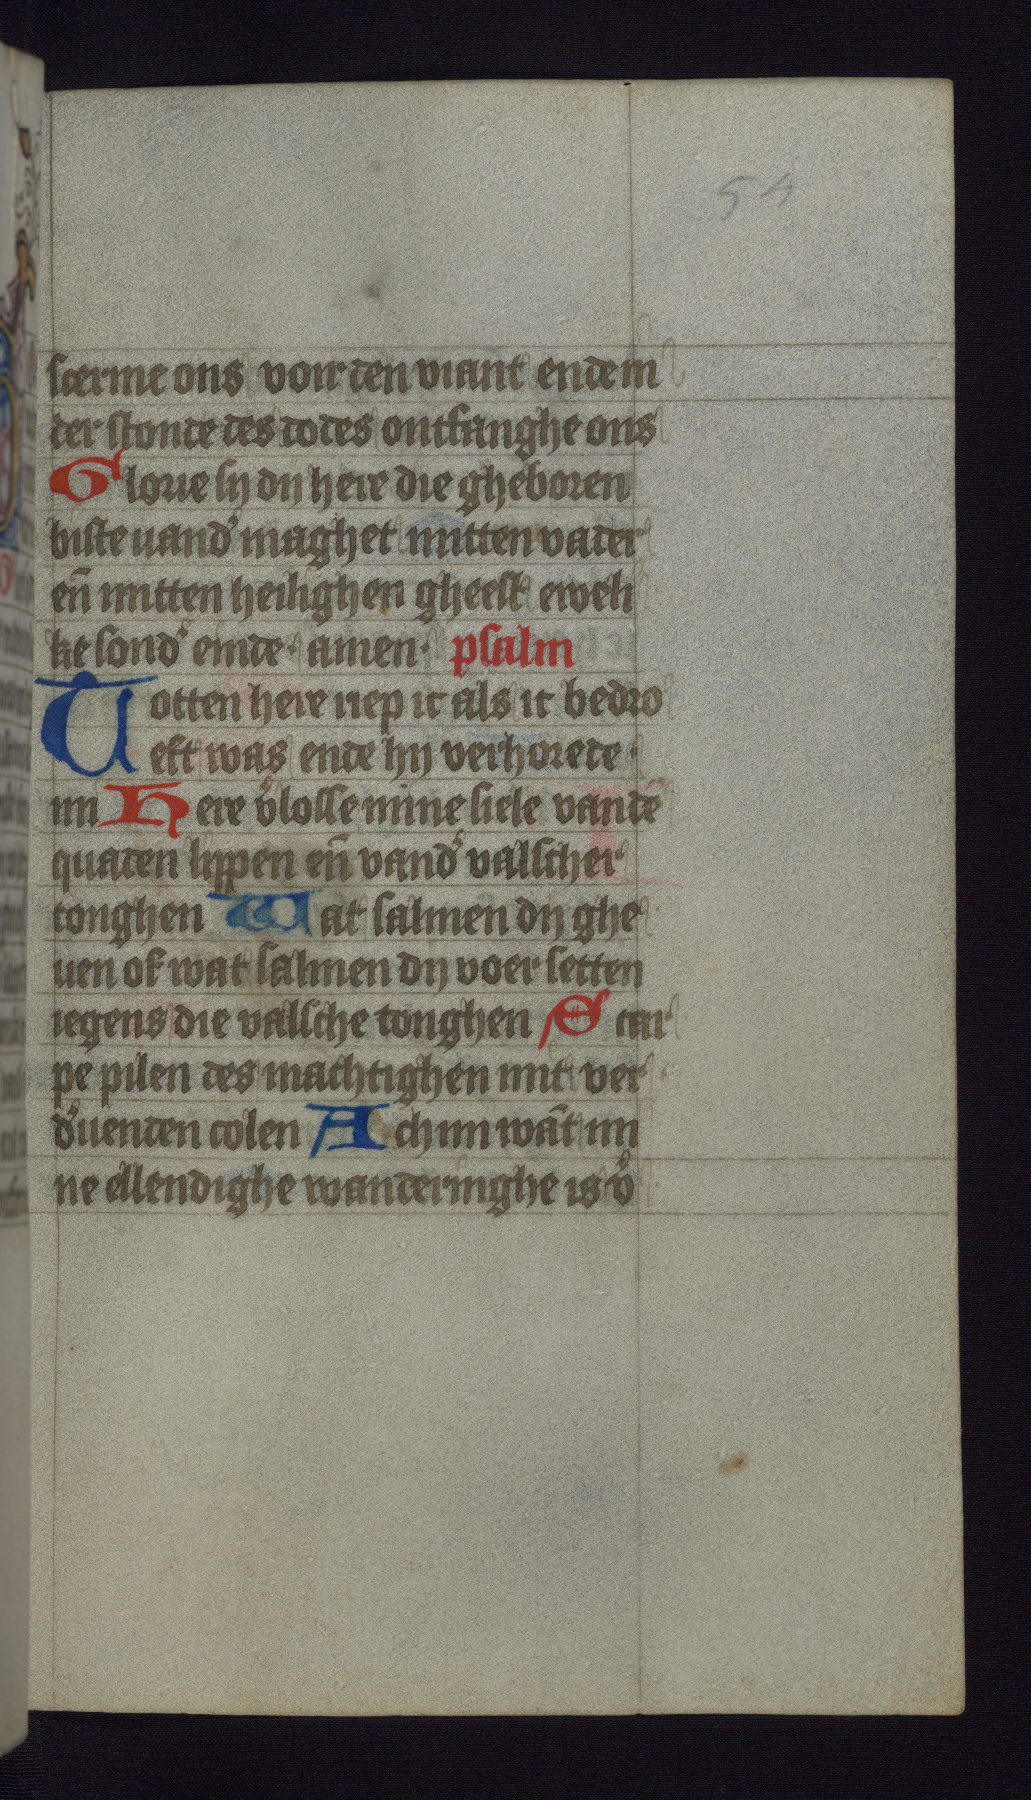 54
scerme ons voir den viant ende in
der stonde des dodes ontfanghe ons
Glorie sy dy here die gheboren
biste vand' maghet mitten vader
en̄ mitten heilighen gheest eweli
ke sond' einde· amen· psalm
Totten here riep ic als ic bedro
eft was ende hy verhorede·
mi Here v'losse mine siele vande
quaden lippen en̄ vand' valscher
tonghen Wat salmen dy ghe
uen of wat salmen dy voer setten
iegens die valsche tonghen Scar
pe pilen des machtighen mit ver
d'uenden colen Ach mi wāt mi
ne ellendighe wanderinghe is v'